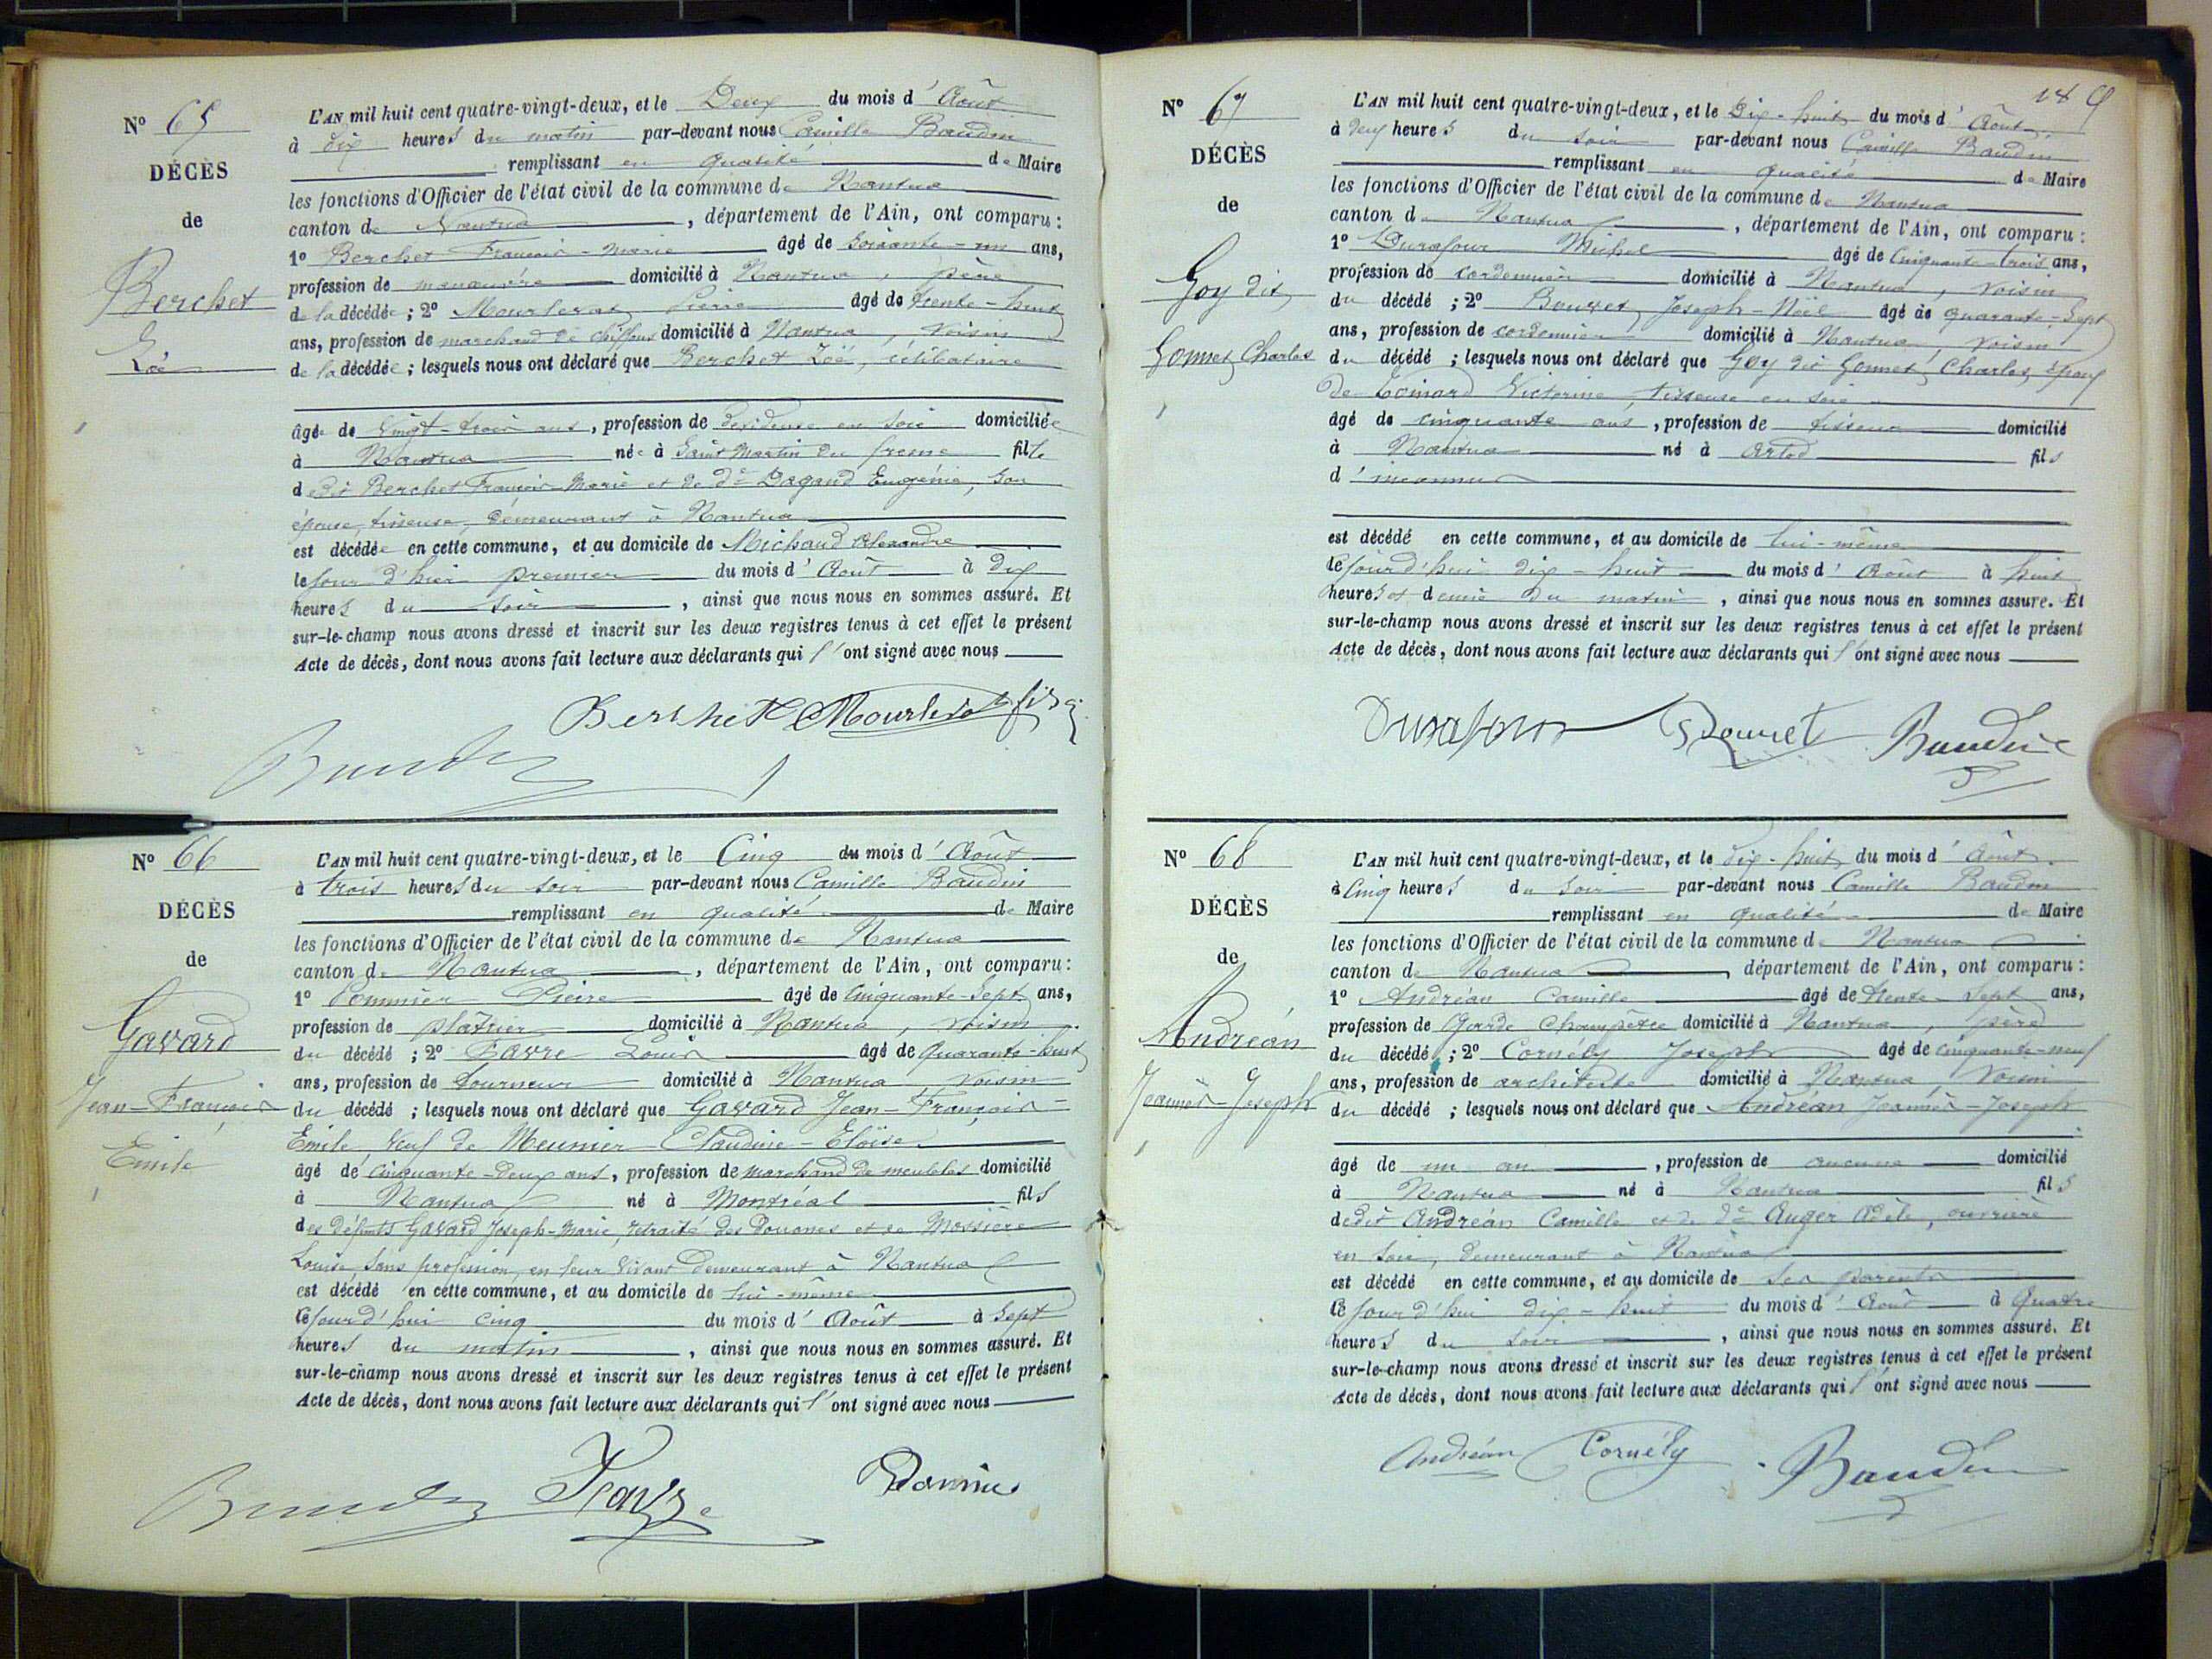 N° 65
DÉCÈS
de
Berchet
Zoé
L'AN mil huit cent quatre-vingt-deux, et le Deux du mois d'Août
à dix heures du matin par-devant nous Camille Baudin
remplissant en qualité de Maire
les fonctions d'Officier de l'état civil de la commune de Nantua
canton de Nantua, département de l'Ain, ont comparu :
1° Berchet François-Marie âgé de soixante-un ans,
profession de manœuvre domicilié à Nantua, père
de la décédée ; 2° Mourlevat Pierre âgé de trente-huit
ans, profession de marchand de chiffons domicilié à Nantua, voisin
de la décédée ; lesquels nous ont déclaré que Berchet Zoé, célibataire
âgée de vingt-trois ans, profession de dévideuse en soie domiciliée
à Nantua née à Saint Martin du fresne fille
dedit Berchet François-Marie et de de Dagand Eugénie, son
épouse, tisseuse, demeurant à Nantua
est décédée en cette commune, et au domicile de Michaud Alexandre
le jour d'hier premier du mois d'Août à dix
heures du soir, ainsi que nous nous en sommes assuré. Et
sur-le-champ nous avons dressé et inscrit sur les deux registres tenus à cet effet le présent
Acte de décès, dont nous avons fait lecture aux déclarants qui l'ont signé avec nous
Berchet Mourlevat fils
Baudin
N° 66
DÉCÈS
de
Gavard
Jean-François
Emile
L'AN mil huit cent quatre-vingt-deux, et le Cinq du mois d'Août
à trois heures du soir par-devant nous Camille Baudin
remplissant en qualité de Maire
les fonctions d'Officier de l'état civil de la commune de Nantua
canton de Nantua, département de l'Ain, ont comparu :
1° Pommier Pierre âgé de cinquante-sept ans,
profession de plâtrier domicilié à Nantua, voisin
du décédé ; 2° Favre Louis âgé de quarante-huit
ans, profession de tourneur domicilié à Nantua, voisin
du décédé ; lesquels nous ont déclaré que Gavard Jean-François-
Emile, veuf de Meunier Claudine-Eloïse
âgé de cinquante-deux ans, profession de marchand de meubles domicilié
à Nantua né à Montréal fils
des défunts Gavard Joseph-Marie, retraité des Douanes et de Mossière
Louise sans profession, en leur vivant demeurant à Nantua
est décédé en cette commune, et au domicile de lui-même
le jourd'hui cinq du mois d'Août à sept
heures du matin, ainsi que nous nous en sommes assuré. Et
sur-le-champ nous avons dressé et inscrit sur les deux registres tenus à cet effet le présent
Acte de décès, dont nous avons fait lecture aux déclarants qui l'ont signé avec nous
Baudin Favre Pommier
N° 67
DÉCÈS
de
Goy dit
Gonnet Charles
L'AN mil huit cent quatre-vingt-deux, et le Dix-huit du mois d'Août
à deux heures du soir par-devant nous Camille Baudin
remplissant en qualité de Maire
les fonctions d'Officier de l'état civil de la commune de Nantua
canton de Nantua, département de l'Ain, ont comparu :
1° Durafour Michel âgé de cinquante-trois ans,
profession de cordonnier domicilié à Nantua, voisin
du décédé ; 2° Bouvret Joseph-Noël âgé de quarante-sept
ans, profession de cordonnier domicilié à Nantua, voisin
du décédé ; lesquels nous ont déclaré que Goy dit Gonnet, Charles, époux
de Victorine, tisseuse en soie
âgé de cinquante ans, profession de tisseur domicilié
à Nantua né à Arlod fils
d'inconnus
est décédé en cette commune, et au domicile de lui-même
le jourd'hui dix-huit du mois d'Août à huit
heures et demie du matin, ainsi que nous nous en sommes assuré. Et
sur-le-champ nous avons dressé et inscrit sur les deux registres tenus à cet effet le présent
Acte de décès, dont nous avons fait lecture aux déclarants qui l'ont signé avec nous
Durafour Baudin
N° 68
DÉCÈS
de
Andréan
Joannès-Joseph
L'AN mil huit cent quatre-vingt-deux, et le dix-huit du mois d'Août
à cinq heures du soir par-devant nous Camille Baudin
remplissant en qualité de Maire
les fonctions d'Officier de l'état civil de la commune de Nantua
canton de Nantua, département de l'Ain, ont comparu :
1° Andréan Camille âgé de trente-sept ans,
profession de Garde Champêtre domicilié à Nantua, père
du décédé ; 2° Cornély Joseph âgé de cinquante-neuf
ans, profession de architecte domicilié à Nantua, voisin
du décédé ; lesquels nous ont déclaré que Andréan Joannès-Joseph
âgé de un an, profession de aucune domicilié
à Nantua né à Nantua fils
dedit Andréan Camille et de de Auger Adèle, ouvrière
en soie, demeurant à Nantua
est décédé en cette commune, et au domicile de ses parents
le jour d'hui dix-huit du mois d'Août à quatre
heures du soir, ainsi que nous nous en sommes assuré. Et
sur-le-champ nous avons dressé et inscrit sur les deux registres tenus à cet effet le présent
Acte de décès, dont nous avons fait lecture aux déclarants qui l'ont signé avec nous
Andréan Cornély Baudin